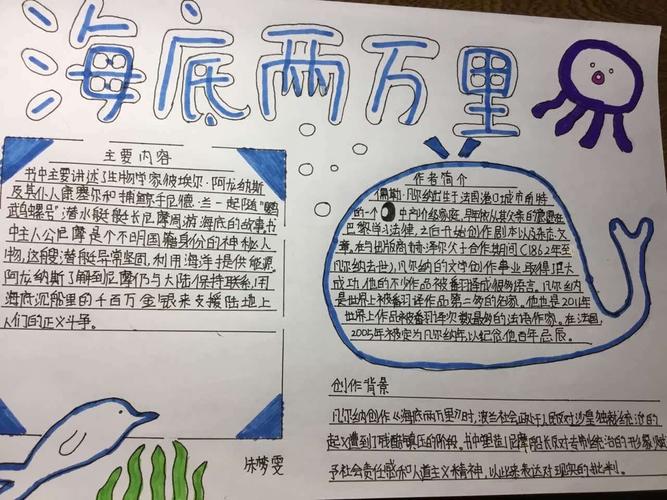 海底两万里
主要内容
书中主要讲述了生物学家彼埃尔·阿龙纳斯
及其仆人康塞尔和捕鲸手尼德·兰一起随“鹦
鹉螺号”潜水艇艇长尼摩周游海底的故事书
中主人公尼摩是个不明国籍身份的神秘人
物,这艘潜艇异常坚固,利用海洋提供能源,
阿龙纳斯了解到尼摩仍与大陆保持联系,用
海底沉船里的千百万金银来支援陆地上
人们的正义斗争。
作者简介
儒勒·凡尔纳出生于法国港口城市南特
的一个中产阶级家庭,早年依从其父亲的意愿在
巴黎学习法律,之后开始创作剧本以及杂志文
章,在与出版商赫泽尔父子合作期间(1862年至
凡尔纳去世),凡尔纳的文学创作事业取得了巨大
成功,他的不少作品被翻译成很多语言。凡尔纳
是世界上被翻译作品第二多的名家,他也是2011年
世界上作品被翻译次数最多的法语作家。在法国,
2005年被定为凡尔纳年,以纪念他百年忌辰。
创作背景
凡尔纳创作《海底两万里》时,波兰社会正处于人民反对沙皇独裁统治的
起义遭到了残酷镇压的阶段。书中塑造了尼摩船长反对专制统治的形象,赋
予社会责任感和人道主义精神,以此来表达对现实的批判。